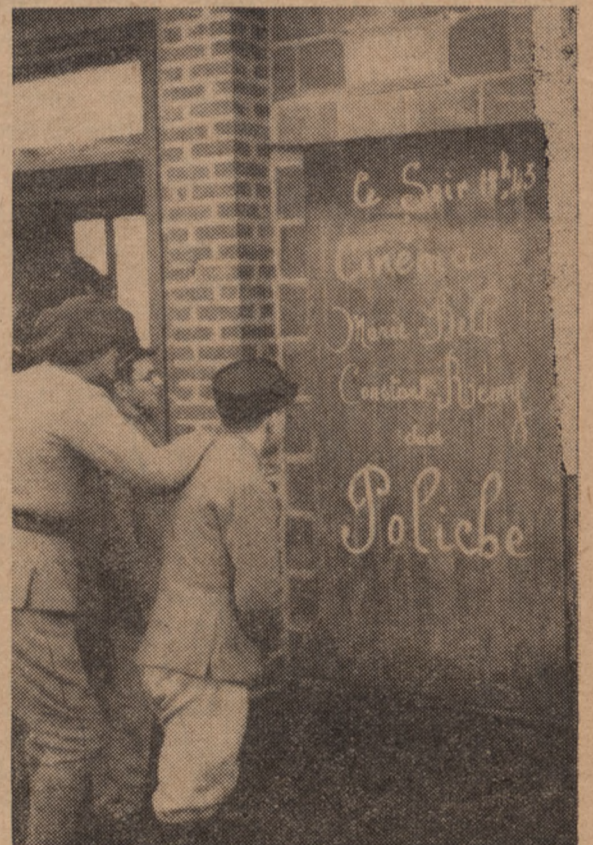 Ce Soir
Cinéma
Marie Bell
Constant Rémy
dans
Poliche